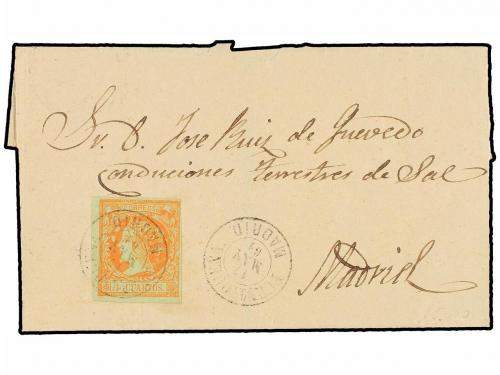 Sr. D. Jose Ruiz de Quevedo
Conduciones terrestres de Sal
CORREOS
CUARTOS.
MADRID
17
MAY
61
MADRID
Madrid